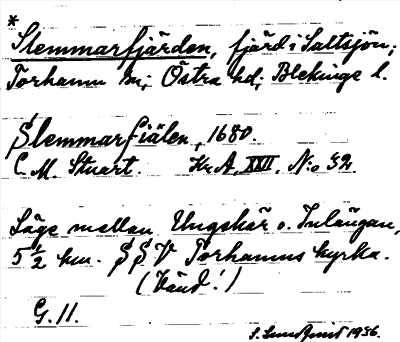 *
Slemmarfjärden, fjärd i Saltsjön;
Torhamn sn; Östra hd; Blekinge l.
Slemmarfiälen, 1680.
C. M. Stuart. Kr. A. XXII, N:o 32
Läge mellan Ungskär o. Inlängan,
5 1/2 km. SSV Torhamns kyrka.
(Vänd!)
G. 11.
S. Lundquist 1936.